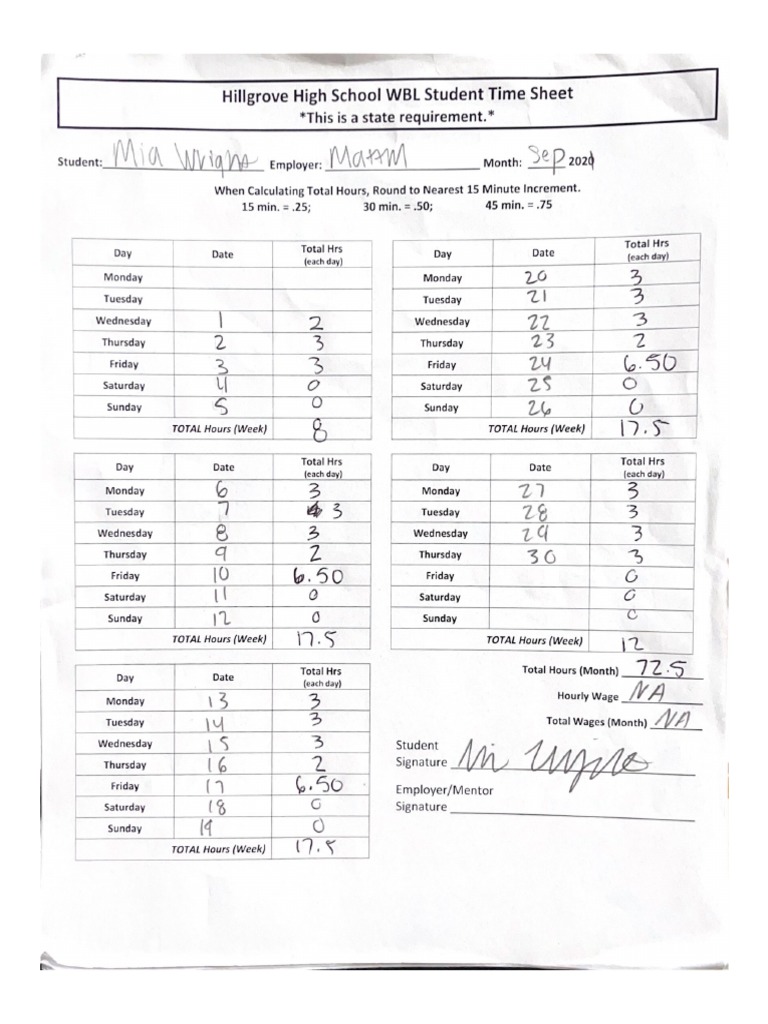 Hillgrove High School WBL Student Time Sheet
*This is a state requirement.*
Student: Mia Wright Employer: MatAM Month: Sep 2021
When Calculating Total Hours, Round to Nearest 15 Minute Increment.
15 min. = .25; 30 min. = .50; 45 min. = .75
Day Date Total Hrs (each day)
Monday
Tuesday
Wednesday 1 2
Thursday 2 3
Friday 3 3
Saturday 4 0
Sunday 5 0
TOTAL Hours (Week) 8
Day Date Total Hrs (each day)
Monday 6 3
Tuesday 7 3
Wednesday 8 3
Thursday 9 2
Friday 10 6.50
Saturday 11 0
Sunday 12 0
TOTAL Hours (Week) 17.5
Day Date Total Hrs (each day)
Monday 13 3
Tuesday 14 3
Wednesday 15 3
Thursday 16 2
Friday 17 6.50
Saturday 18 0
Sunday 19 0
TOTAL Hours (Week) 17.5
Day Date Total Hrs (each day)
Monday 20 3
Tuesday 21 3
Wednesday 22 3
Thursday 23 2
Friday 24 6.50
Saturday 25 0
Sunday 26 0
TOTAL Hours (Week) 17.5
Day Date Total Hrs (each day)
Monday 27 3
Tuesday 28 3
Wednesday 29 3
Thursday 30 3
Friday 0
Saturday 0
Sunday 0
TOTAL Hours (Week) 12
Total Hours (Month) 72.5
Hourly Wage NA
Total Wages (Month) NA
Student
Signature
Employer/Mentor
Signature